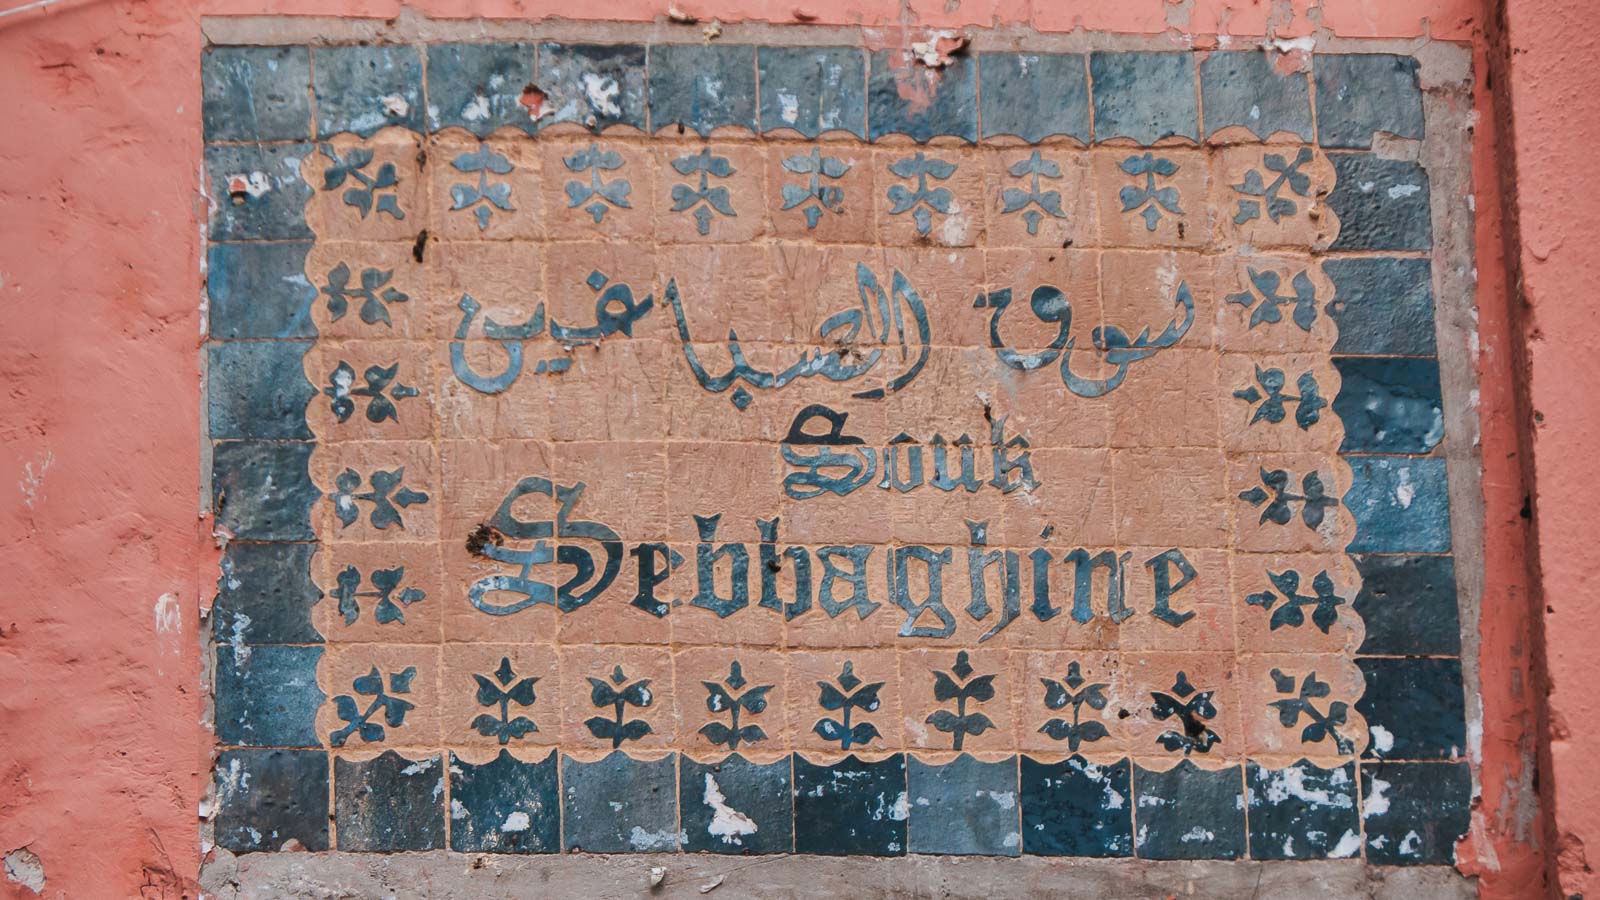 سوق الصباغين
Souk
Sebbaghine